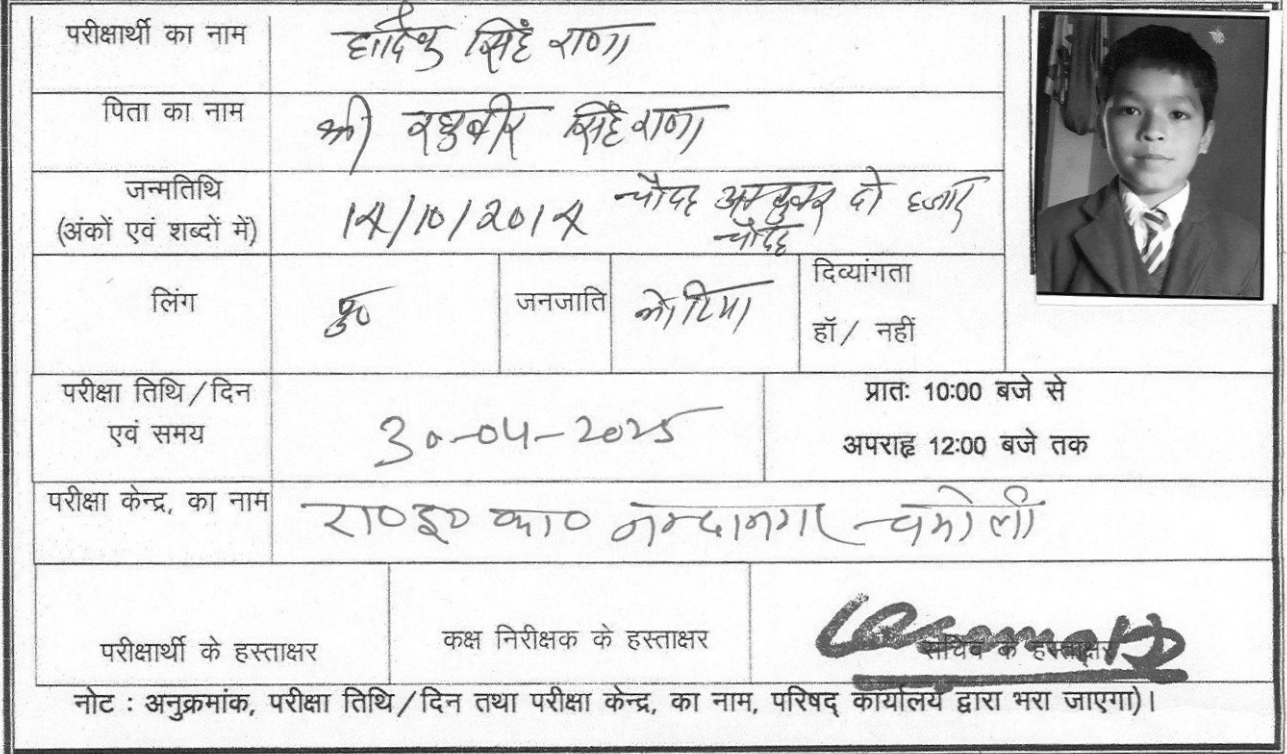 परीक्षार्थी का नाम हार्दिक सिंह राणा
पिता का नाम श्री रघुबीर सिंह राणा
जन्मतिथि
(अंकों एवं शब्दों में) 14/10/2014 चौदह अक्टूबर दो हजार
चौदह
लिंग पु० जनजाति भोटिया दिव्यांगता
हॉ / नहीं
परीक्षा तिथि / दिन
एवं समय 30-04-2025 प्रातः 10:00 बजे से
अपराह्न 12:00 बजे तक
परीक्षा केन्द्र, का नाम रा०इ०का० नन्दानगर चमोली
परीक्षार्थी के हस्ताक्षर कक्ष निरीक्षक के हस्ताक्षर सचिव के हस्ताक्षर
नोट : अनुक्रमांक, परीक्षा तिथि / दिन तथा परीक्षा केन्द्र, का नाम, परिषद् कार्यालय द्वारा भरा जाएगा)।